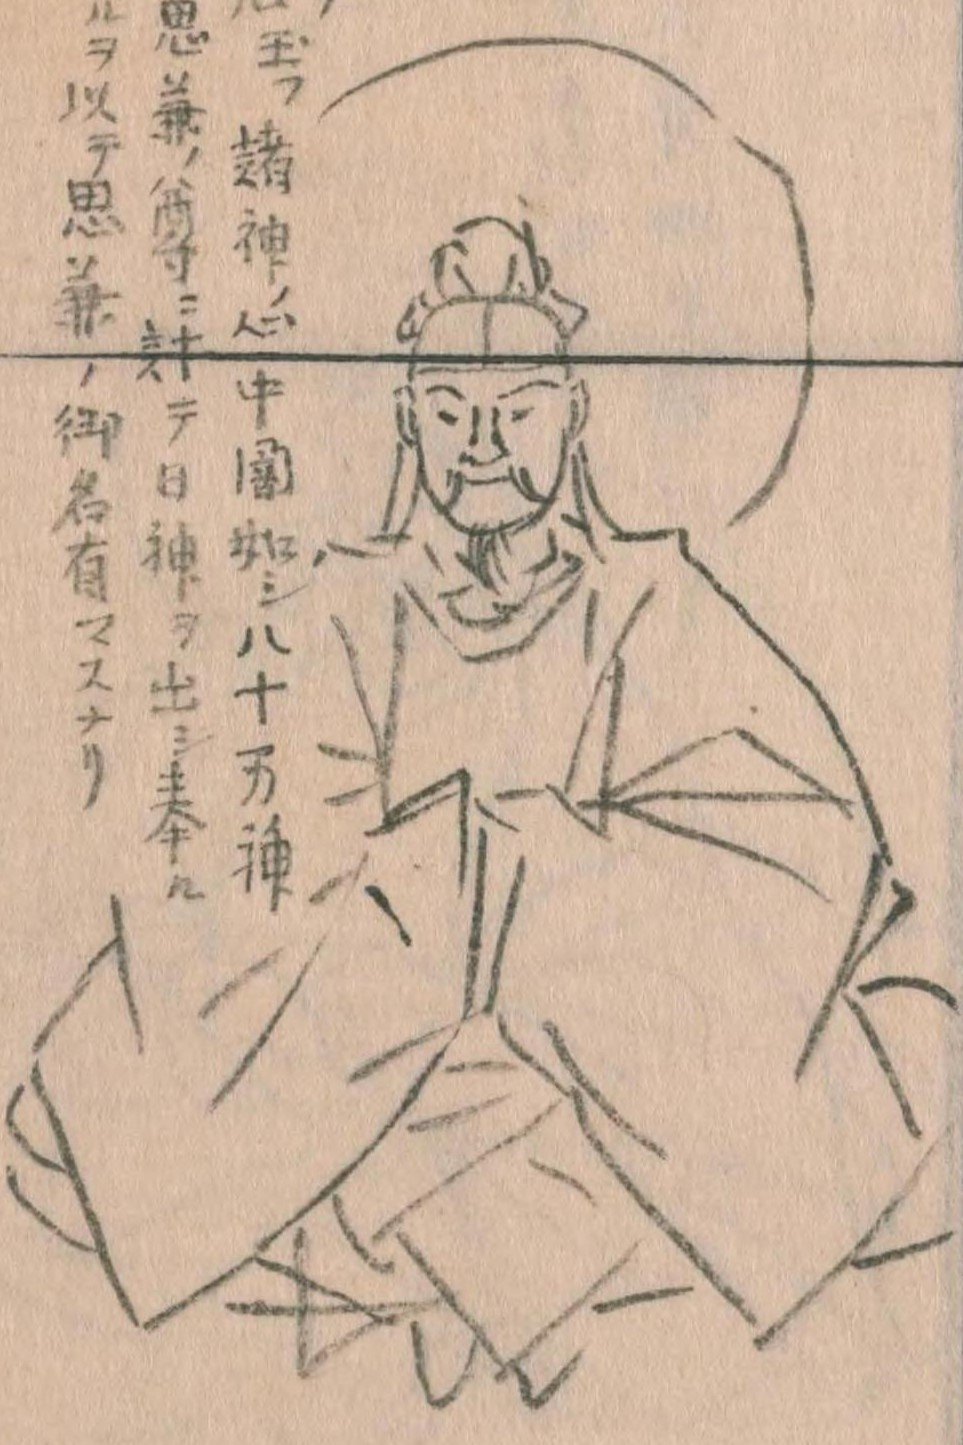 玉フ諸神ノ心中闇如シ八十万神
思兼ノ尊ニ計テ日神ヲ出シ奉ル
ルヲ以テ思兼ノ御名有マスナリ